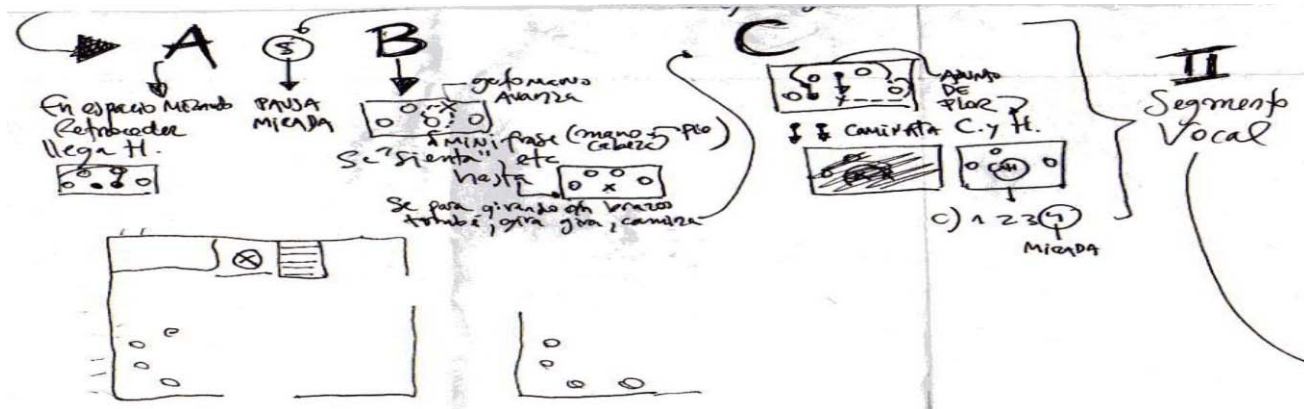 A
En espacio MIZANDO
Retroceder
llega H.
5
PAUSA
MIRADA
B
gesto mano
Avanza
MINI frase (mano pie)
cabeza
Se "Sienta", etc
hasta
Se para girando con brazos
gira gira, camina
C
DE
FLOR
CAMINATA
C. y H.
C+H
C) 1 2 3 4
MIRADA
II
Segmento
Vocal